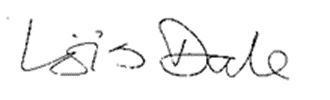 Lois Dale